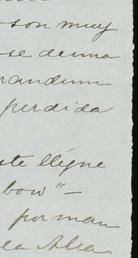 son muy
se deuna
randum
perdida
ste llegue
bow" —
por man
la Alca